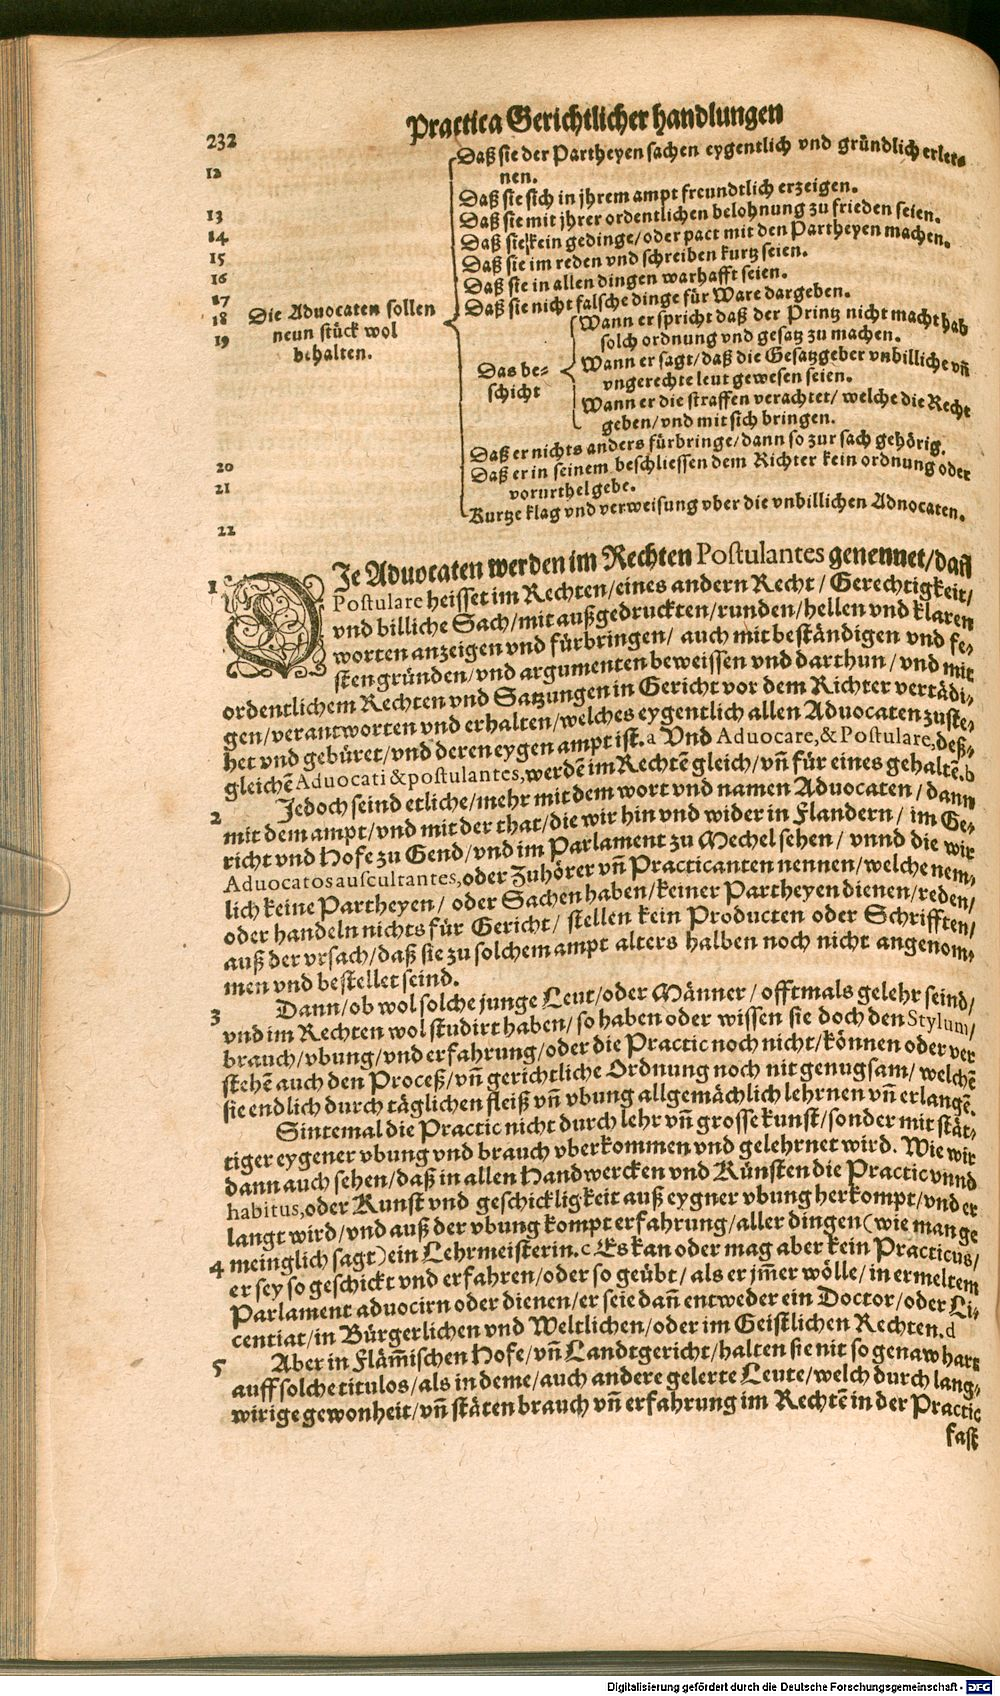 Practica Gerichtlicher handlungen
232
12 Daß sie der Partheyen sachen eygentlich vnd gründlich erler-
nen.
Daß sie sich in jhrem ampt freundtlich erzeigen.
13 Daß sie mit jhrer ordentlichen belohnung zu frieden seien.
14 Daß sie kein gedinge/oder pact mit den Partheyen machen.
15 Daß sie im reden vnd schreiben kurtz seien.
16 Daß sie in allen dingen warhafft seien.
17 Daß sie nicht falsche dinge für Ware dargeben.
18 Die Aduocaten sollen
19 neun stück wol
behalten.
Das be-
schicht
Wann er spricht daß der Printz nicht macht hab
solch ordnung vnd gesatz zu machen.
Wann er sagt/daß die Gesatzgeber vnbilliche vñ
vngerechte leut gewesen seien.
Wann er die straffen verachtet/ welche die Recht
geben/vnd mit sich bringen.
20 Daß er nichts anders fürbringe/dann so zur sach gehörig.
21 Daß er in seinem beschliessen dem Richter kein ordnung oder
vorurthel gebe.
22 Kurtze klag vnd verweisung vber die vnbillichen Adnocaten.
1 DJe Aduocaten werden im Rechten Postulantes genennet/dañ
Postulare heisset im Rechten/eines andern Recht/ Gerechtigkeit/
vnd billiche Sach/mit außgedruckten/runden/hellen vnd klaren
worten anzeigen vnd fürbringen/ auch mit beständigen vnd fe-
sten gründen/vnd argumenten beweissen vnd darthun/vnd mit
ordentlichem Rechten vnd Satzungen in Gericht vor dem Richter vertädi-
gen/verantworten vnd erhalten/welches eygentlich allen Aduocaten zuste-
het vnd gebüret/vnd deren eygen ampt ist.a Vnd Aduocare,& Postulare,deß-
gleichẽ Aduocati & postulantes,werdẽ im Rechtẽ gleich/vñ für eines gehaltẽ.b
2 Jedoch seind etliche/mehr mit dem wort vnd namen Aduocaten/ dann
mit dem ampt/vnd mit der that/die wir hin vnd wider in Flandern/ im Ge-
richt vnd Hofe zu Gend/vnd im Parlament zu Mechel sehen/ vnnd die wir
Aduocatos auscultantes,oder Zuhörer vñ Practicanten nennen/welche nem-
lich keine Partheyen/ oder Sachen haben/keiner Partheyen dienen/reden/
oder handeln nichts für Gericht/ stellen kein Producten oder Schrifften/
auß der vrsach/daß sie zu solchem ampt alters halben noch nicht angenom-
men vnd bestellet seind.
3 Dann/ob wol solche junge Leut/oder Männer/ offtmals gelehr seind/
vnd im Rechten wol studirt haben/ so haben oder wissen sie doch den Stylum/
brauch/vbung/vnd erfahrung/oder die Practic noch nicht/können oder ver
stehẽ auch den Proceß/vñ gerichtliche Ordnung noch nit genugsam/ welchẽ
sie endlich durch täglichen fleiß vñ vbung allgemächlich lehrnen vñ erlangẽ.
Sintemal die Practic nicht durch lehr vñ grosse kunst/sonder mit stät-
tiger eygener vbung vnd brauch vberkommen vnd gelehrnet wird. Wie wir
dann auch sehen/daß in allen Handwercken vnd Künsten die Practic vnnd
habitus,oder Kunst vnd geschickligkeit auß eygner vbung herkompt/vnd er
langt wird/vnd auß der vbung kompt erfahrung/aller dingen(wie man ge
4 meinglich sagt)ein Lehrmeisterin.c Es kan oder mag aber kein Practicus/
er sey so geschickt vnd erfahren/oder so geübt/ als er jm̃er wölle/in ermeltem
Parlament aduocirn oder dienen/er seie dañ entweder ein Doctor/oder Li-
centiat/in Bürgerlichen vnd Weltlichen/oder im Geistlichen Rechten.d
5 Aber in Fläm̃ischen Hofe/vñ Landtgericht/halten sie nit so genaw hart
auff solche titulos/als in deme/auch andere gelerte Leute/welch durch lang-
wirige gewonheit/vñ stäten brauch vñ erfahrung im Rechtẽ in der Practic
fast
Digitalisierung gefördert durch die Deutsche Forschungsgemeinschaft - DFG